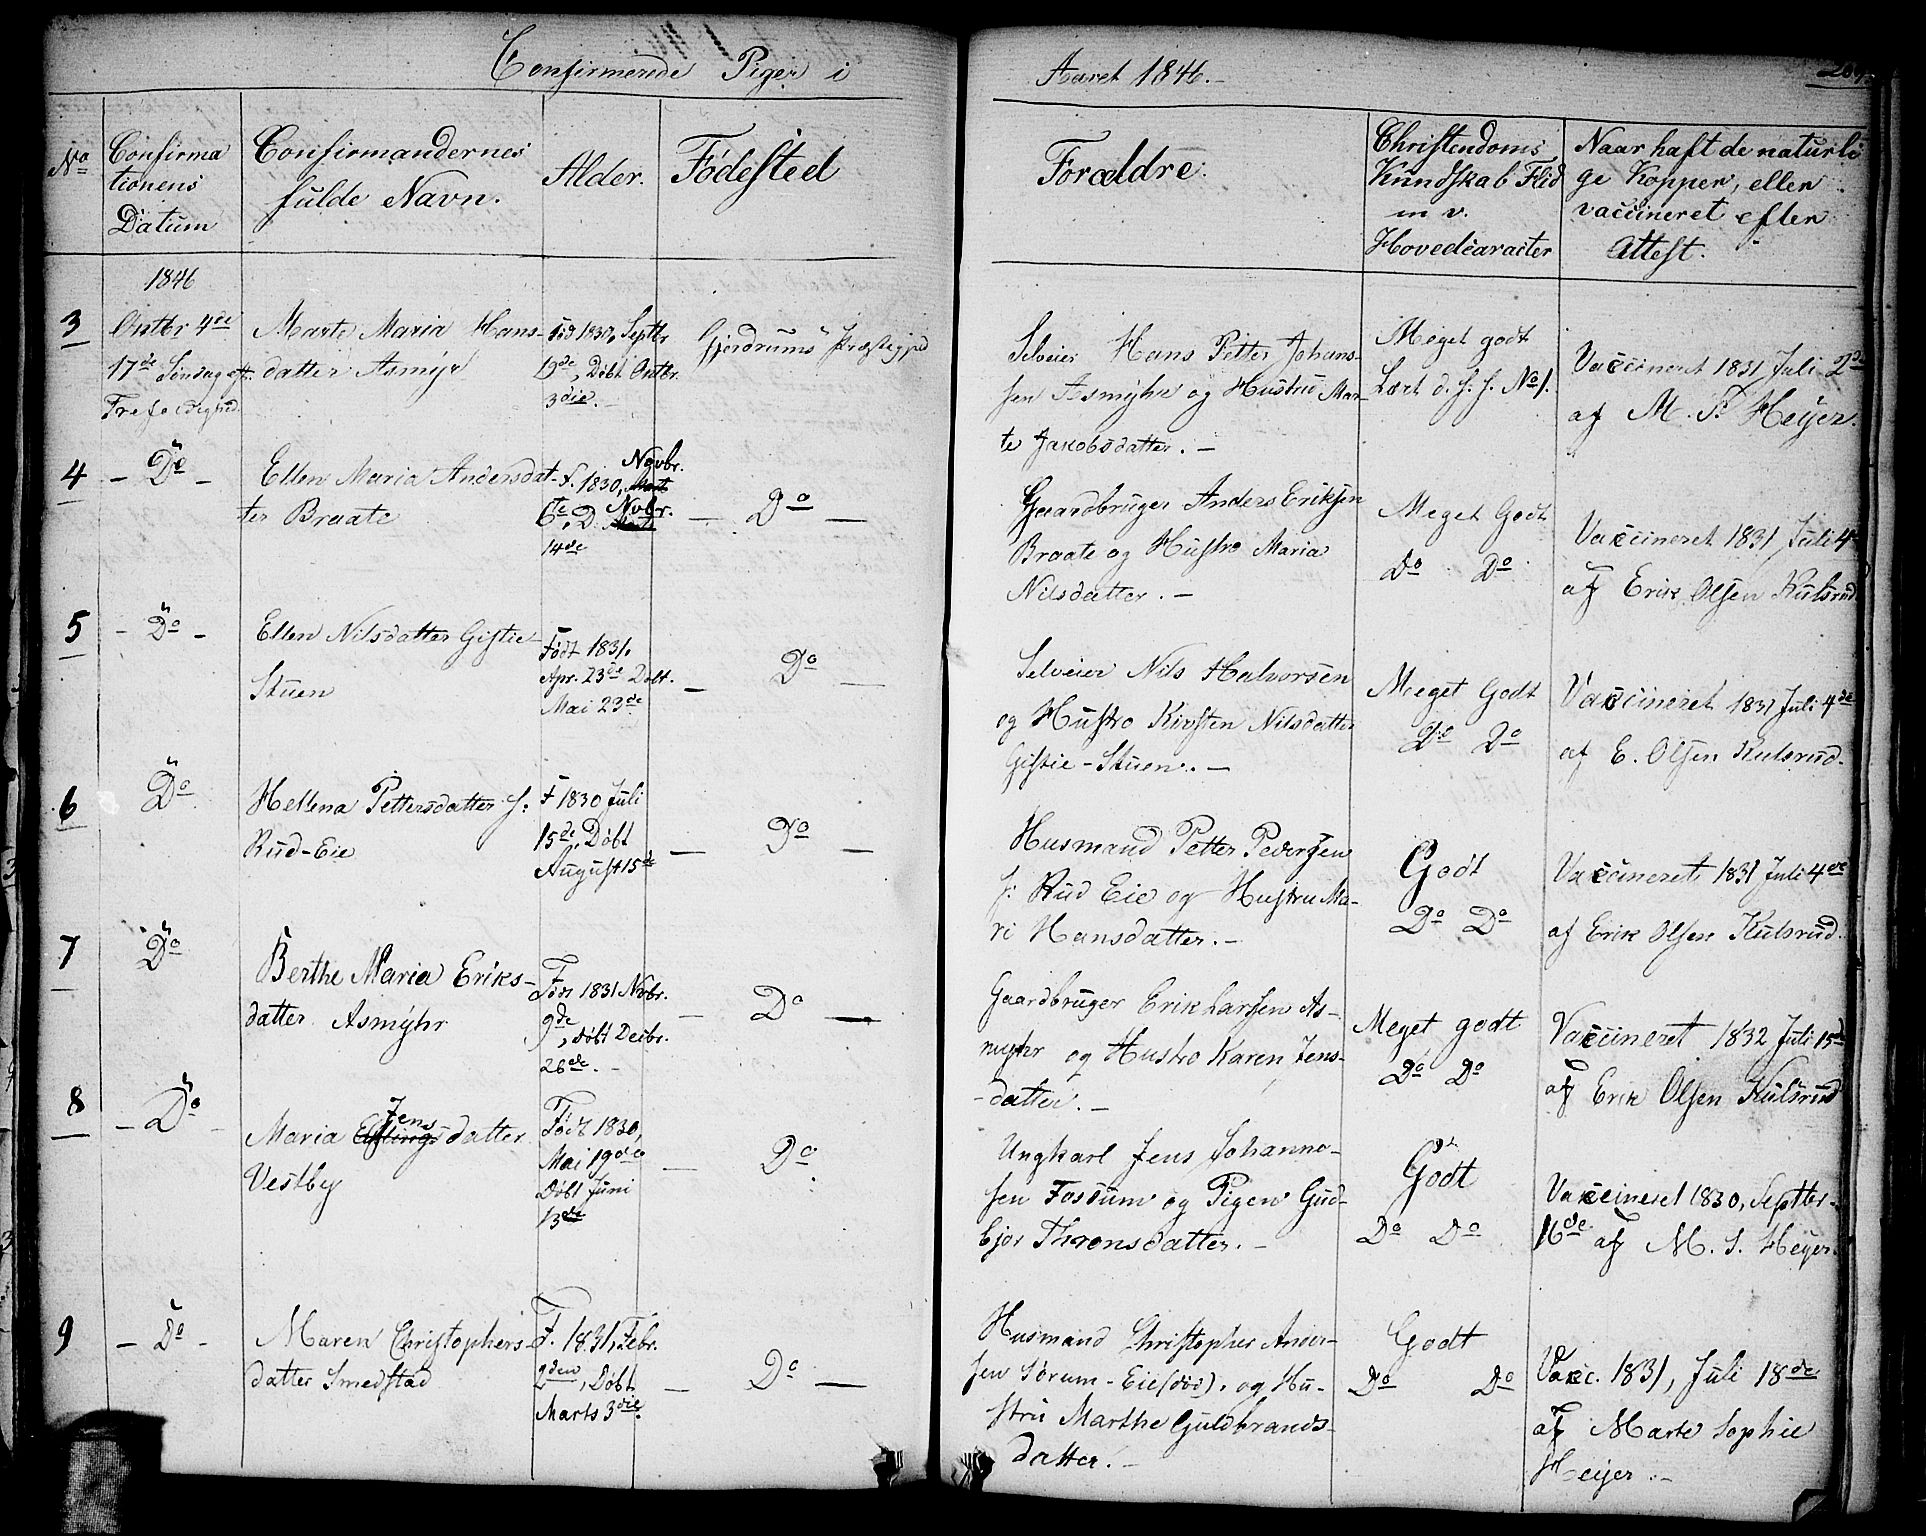 Confirmerede Piger i Aaret 1846.-
No
Confirma
tionens
Datum
Confirmandernes
fulde Navn.
Alder.
Fødested
Forældre.
Christendoms
Kundskab Flid
m v.
Hovedcaracter
Naar haft de naturli
ge Kopper, eller
vaccineret efter
Attest.
1846
3
Octbr 4de
17de Søndag eft.
Trefoldighed
Marte Maria Hans-
datter Asmyr
Fød 1830, Septbr
19de, Døbt Octbr.
3die.-
Gjerdrums Præstegjeld
Selveier Hans Petter Johans-
sen Asmyhr og Hustru Mar-
te Jakobsdatter. -
Meget godt
Lært d. s. s. No 1.
Vaccineret 1831 Juli 2de
af M. S. Heyer.
4
- Do -
Ellen Maria Andersdat-
ter Braate
F. 1830, Novbr.
6te, D. Novbr.
14de
- Do -
Gaardbruger Anders Eriksen
Braate og Hustro Maria
Nilsdatter. -
Meget Godt
Do Do
Vaccineret 1831, Juli 4
af Erik Olsen Kulsrud
5
- Do -
Ellen Nilsdatter Gistie-
Stuen
Født 1831,
Apr. 23de Døbt.
Mai 23de
- Do -
Selveier Nils Halvorsen
og Hustro Kirsten Nilsdatter
Gistie-Stuen. -
Meget Godt
Do Do
Vaccineret 1831 Juli 4de
af E. Olsen Kulsrud.
6
Do
Hellena Pettersdatter f:
Rud-Eie
F 1830 Juli
15de, Døbt
August 15de
- Do -
Husmand Petter Pedersen
f: Rud Eie og Hustru Ma-
ri Hansdatter. -
Godt
Do Do
Vaccineret 1831 Juli 4de
af Erik Olsen Kulsrud.
7
Do
Berthe Maria Eriks-
datter Asmyhr
Født 1831 Novbr.
9de, døbt Decbr.
26de. -
- Do -
Gaardbruger Erik Larssen As-
myhr og Hustro Karen Jens-
-datter. -
Meget godt
Do Do
Vaccineret 1832 Juli 15de
af Erik Olsen Kulsrud
8
- Do -
Jens
Maria datter
Vestby
Født 1830,
Mai 19de
Døbt Juni
13de
- Do
Ungkarl Jens Johanne-
sen Fossum og Pigen Gud-
bjør Thronsdatter. -
Godt
Do Do
Vaccineret 1830, Septbr.
16de af M. S. Heyer.
9
- Do -
Maren Christophers-
datter Smedstad
F. 1831, Febr.
2den, Døbt
Marts 3die.
- Do -
Husmand Christopher Ander-
sen Sørum-Eie (død), og Hu-
stru Marthe Guldbrands-
datter. -
Godt
Do Do
Vacc. 1831, Juli 18de
af Marte Sophie
Heyer. -